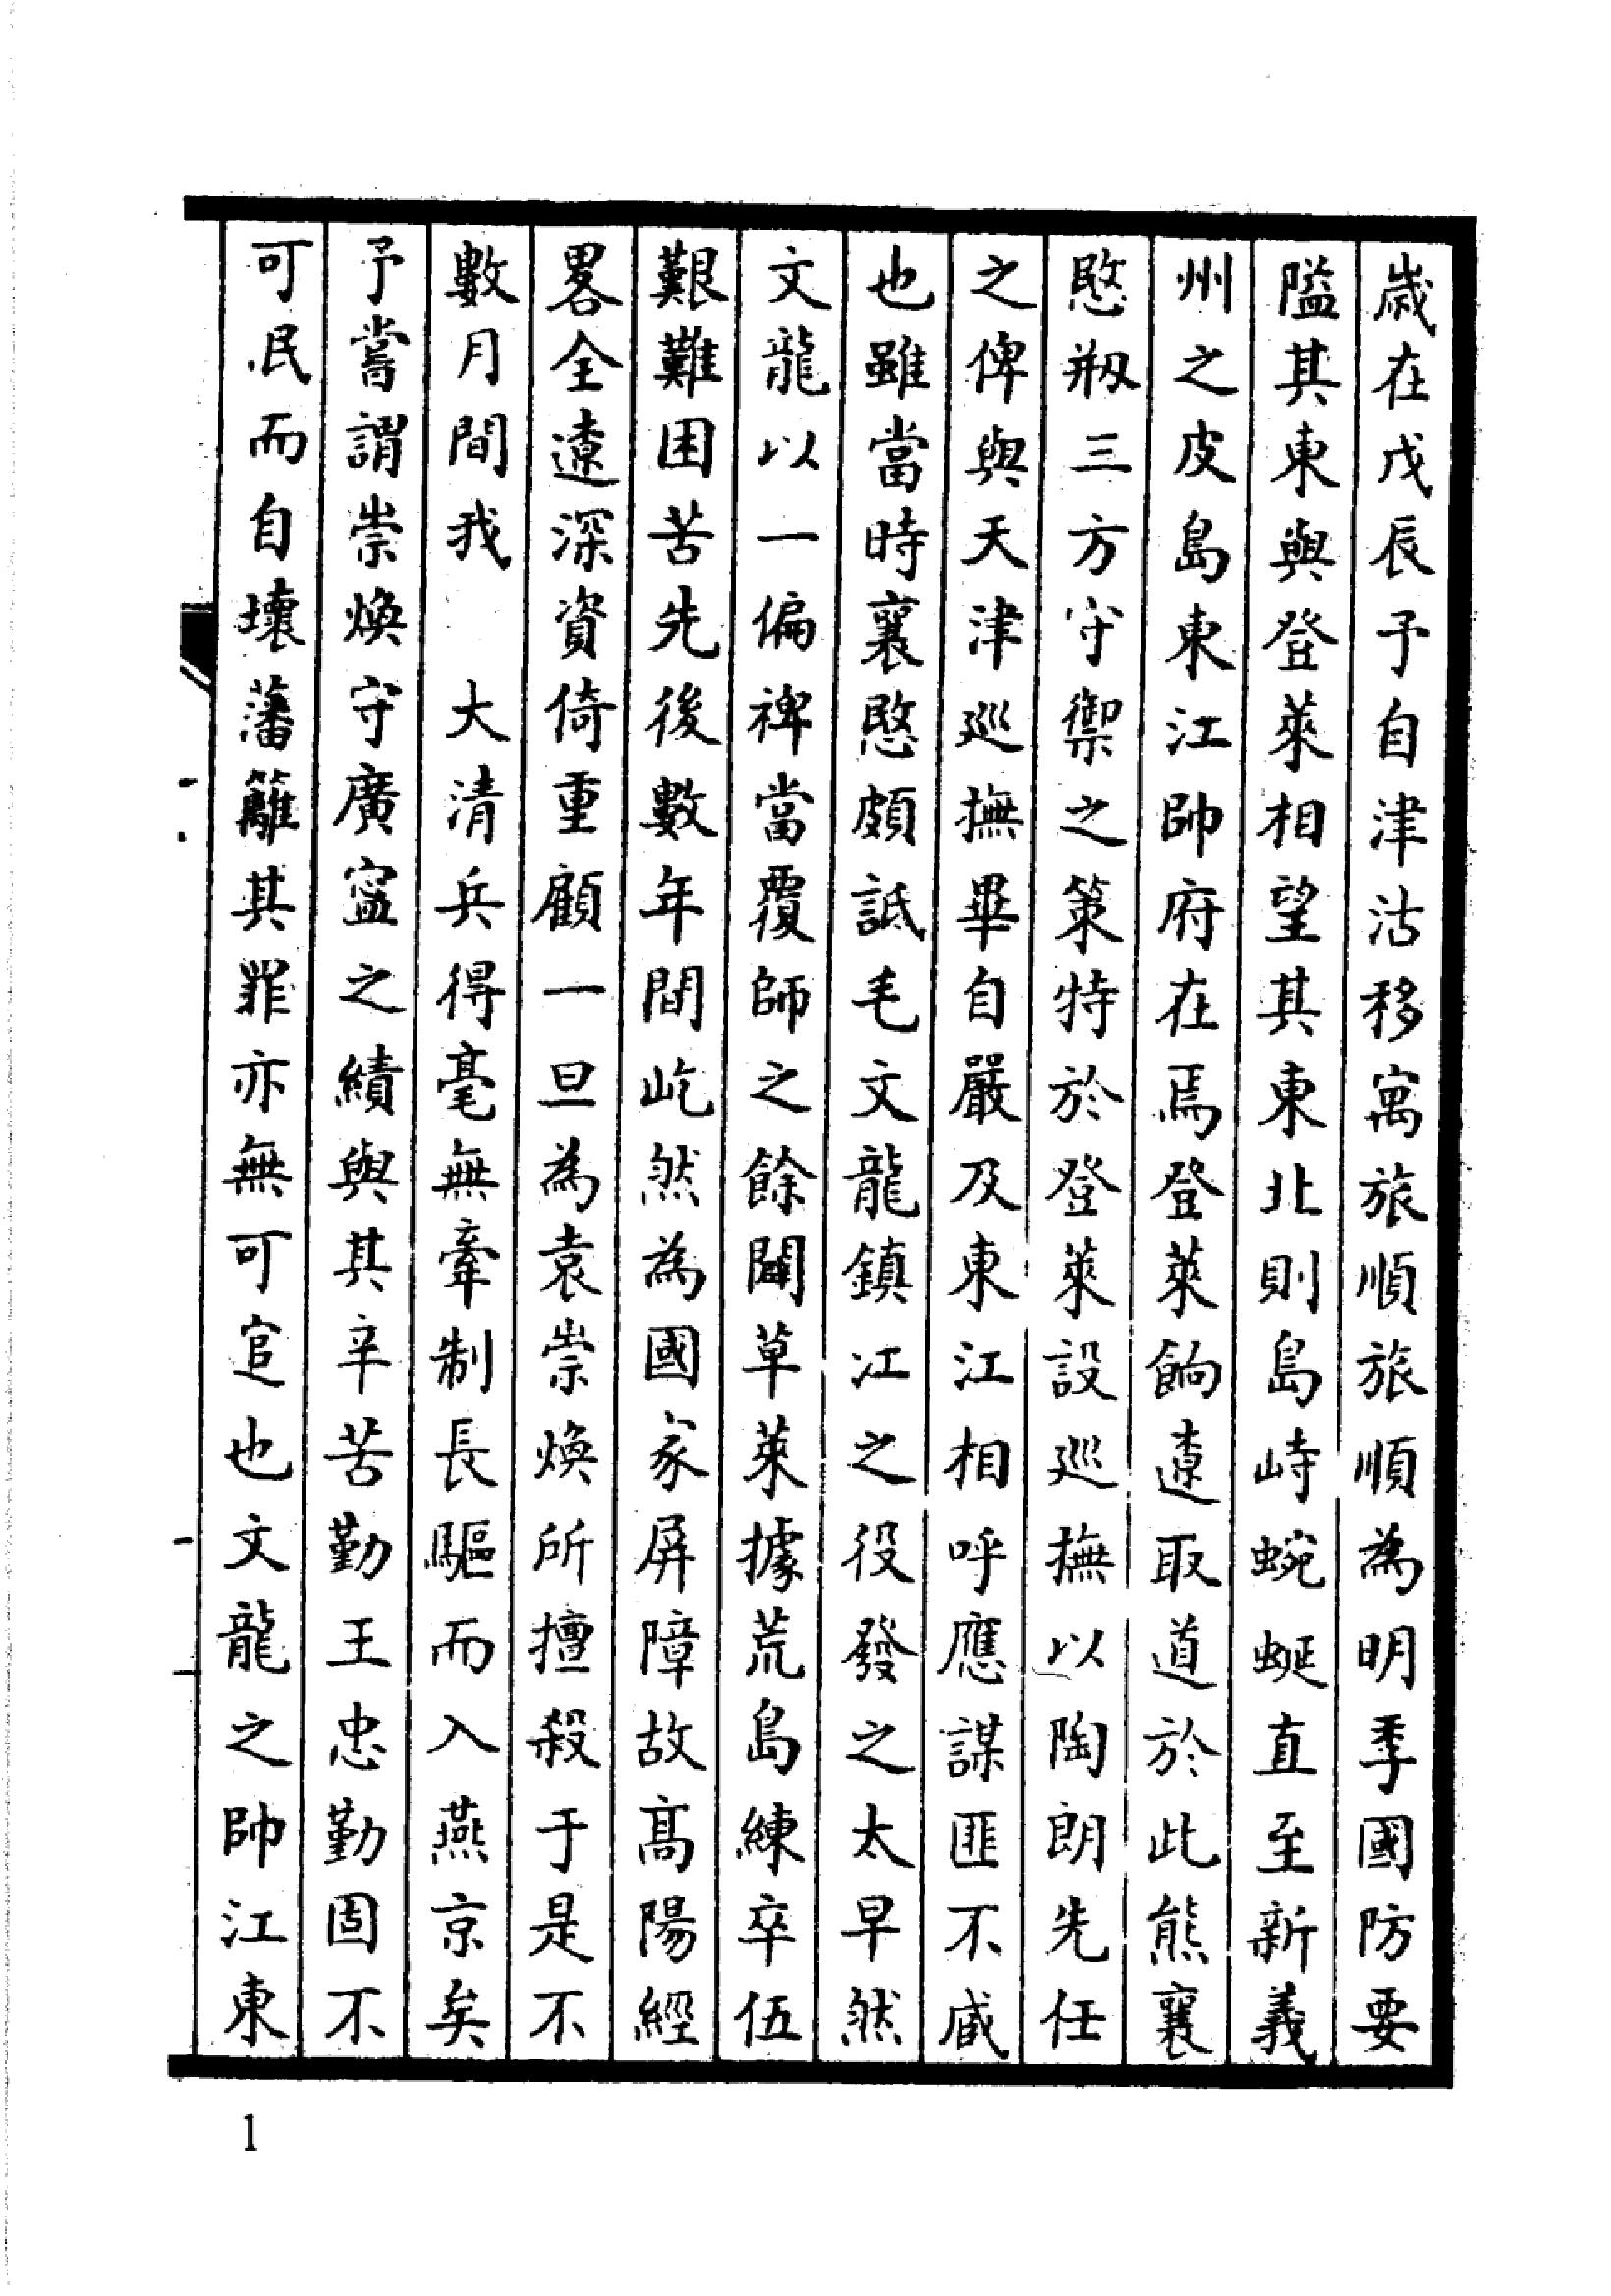 歲在戊辰予自津沽移寓旅順旅順為明季國防要
隘其東與登萊相望其東北則島峙蜿蜒直至新義
州之皮島東江帥府在焉登萊餉遼取道於此熊襄
愍剏三方守禦之策特於登萊設巡撫以陶朗先任
之俾與天津巡撫畢自嚴及東江相呼應謀匪不臧
也雖當時襄愍頗詆毛文龍鎮江之役發之太早然
文龍以一偏裨當覆師之餘闢草萊據荒島練卒伍
艱難困苦先後數年間屹然為國家屏障故高陽經
畧全遼深資倚重顧一旦為袁崇煥所擅殺于是不
數月間我　大清兵得毫無牽制長驅而入燕京矣
予嘗謂崇煥守廣寧之績與其辛苦勤王忠勤固不
可泯而自壞藩籬其罪亦無可逭也文龍之帥江東
1